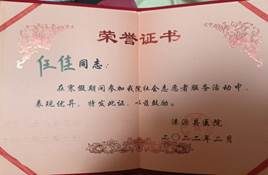 荣誉证书
任佳同志：
在寒假期间参加我院社会志愿者服务活动中，
表现优异，特发此证，以兹鼓励。
涞源县医院
二〇二二年二月